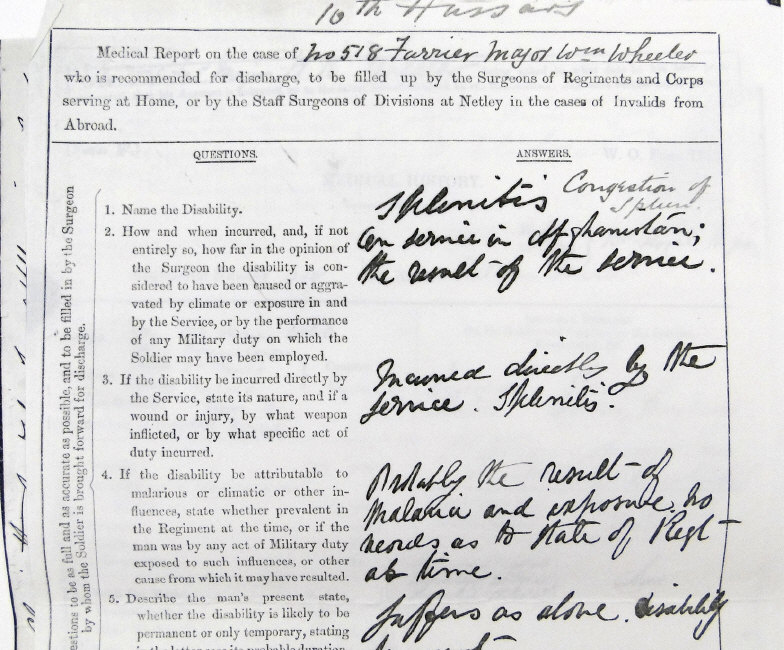 10th Hussars
Medical Report on the case of No 518 Farrier Major Wm Wheeler
who is recommended for discharge, to be filled up by the Surgeons of Regiments and Corps
serving at Home, or by the Staff Surgeons of Divisions at Netley in the cases of Invalids from
Abroad.
QUESTIONS.
ANSWERS.
1. Name the Disability.
Splenitis Congestion of
Spleen.
2. How and when incurred, and, if not
entirely so, how far in the opinion of
the Surgeon the disability is con-
sidered to have been caused or aggra-
vated by climate or exposure in and
by the Service, or by the performance
of any Military duty on which the
Soldier may have been employed.
On service in Afghanistan;
the result of the service.
3. If the disability be incurred directly by
the Service, state its nature, and if a
wound or injury, by what weapon
inflicted, or by what specific act of
duty incurred.
Incurred directly by the
service. Splenitis.
4. If the disability be attributable to
malarious or climatic or other in-
fluences, state whether prevalent in
the Regiment at the time, or if the
man was by any act of Military duty
exposed to such influences, or other
cause from which it may have resulted.
Probably the result of
Malaria and exposure, no
records as to state of Regt
at time.
5. Describe the man's present state,
whether the disability is likely to be
permanent or only temporary, stating
in the latter case its probable duration.
Suffers as above. disability
estions to be as full and as accurate as possible, and to be filled in by the Surgeon
by whom the Soldier is brought forward for discharge.